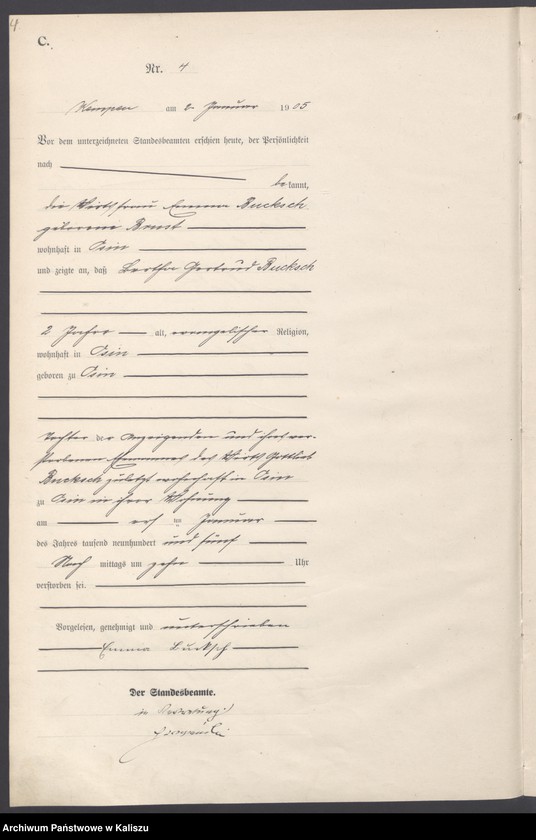 4
C.
Nr. 4
Kempen am 2. Januar 1905
Vor dem unterzeichneten Standesbeamten erschien heute, der Persönlichkeit
nach
bekannt,
die Wirthsfrau Emma Bucksch
geborene
wohnhaft in Osin
und zeigte an, daß Bertha Gertrud Bucksch
2 Jahre alt, evangelischer Religion,
wohnhaft in Osin
geboren zu Osin
Tochter der Anzeigenden und ihres ver-
storbenen Ehemannes des Wirths Gottlieb
Bucksch zuletzt wohnhaft in Osin
zu Osin in ihrer Wohnung
am ersten Januar
des Jahres tausend neunhundert und fünf
Nach mittags um zehn Uhr
verstorben sei.
Vorgelesen, genehmigt und unterschrieben
Emma Bucksch
Der Standesbeamte.
in Vertretung
Archiwum Państwowe w Kaliszu